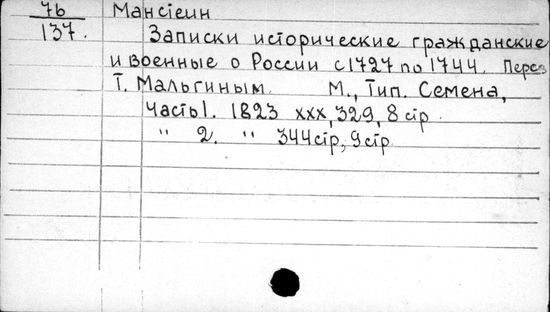 76
137.
Мансіеин
Записки исторические гражданские
и военные о России с 1727 по 1744. Перев
Т. Мальгиным. М., Тип. Семена,
Часть 1. 1823 xxx, 329, 8 стр.
" 2. " 344 стр, 9 стр